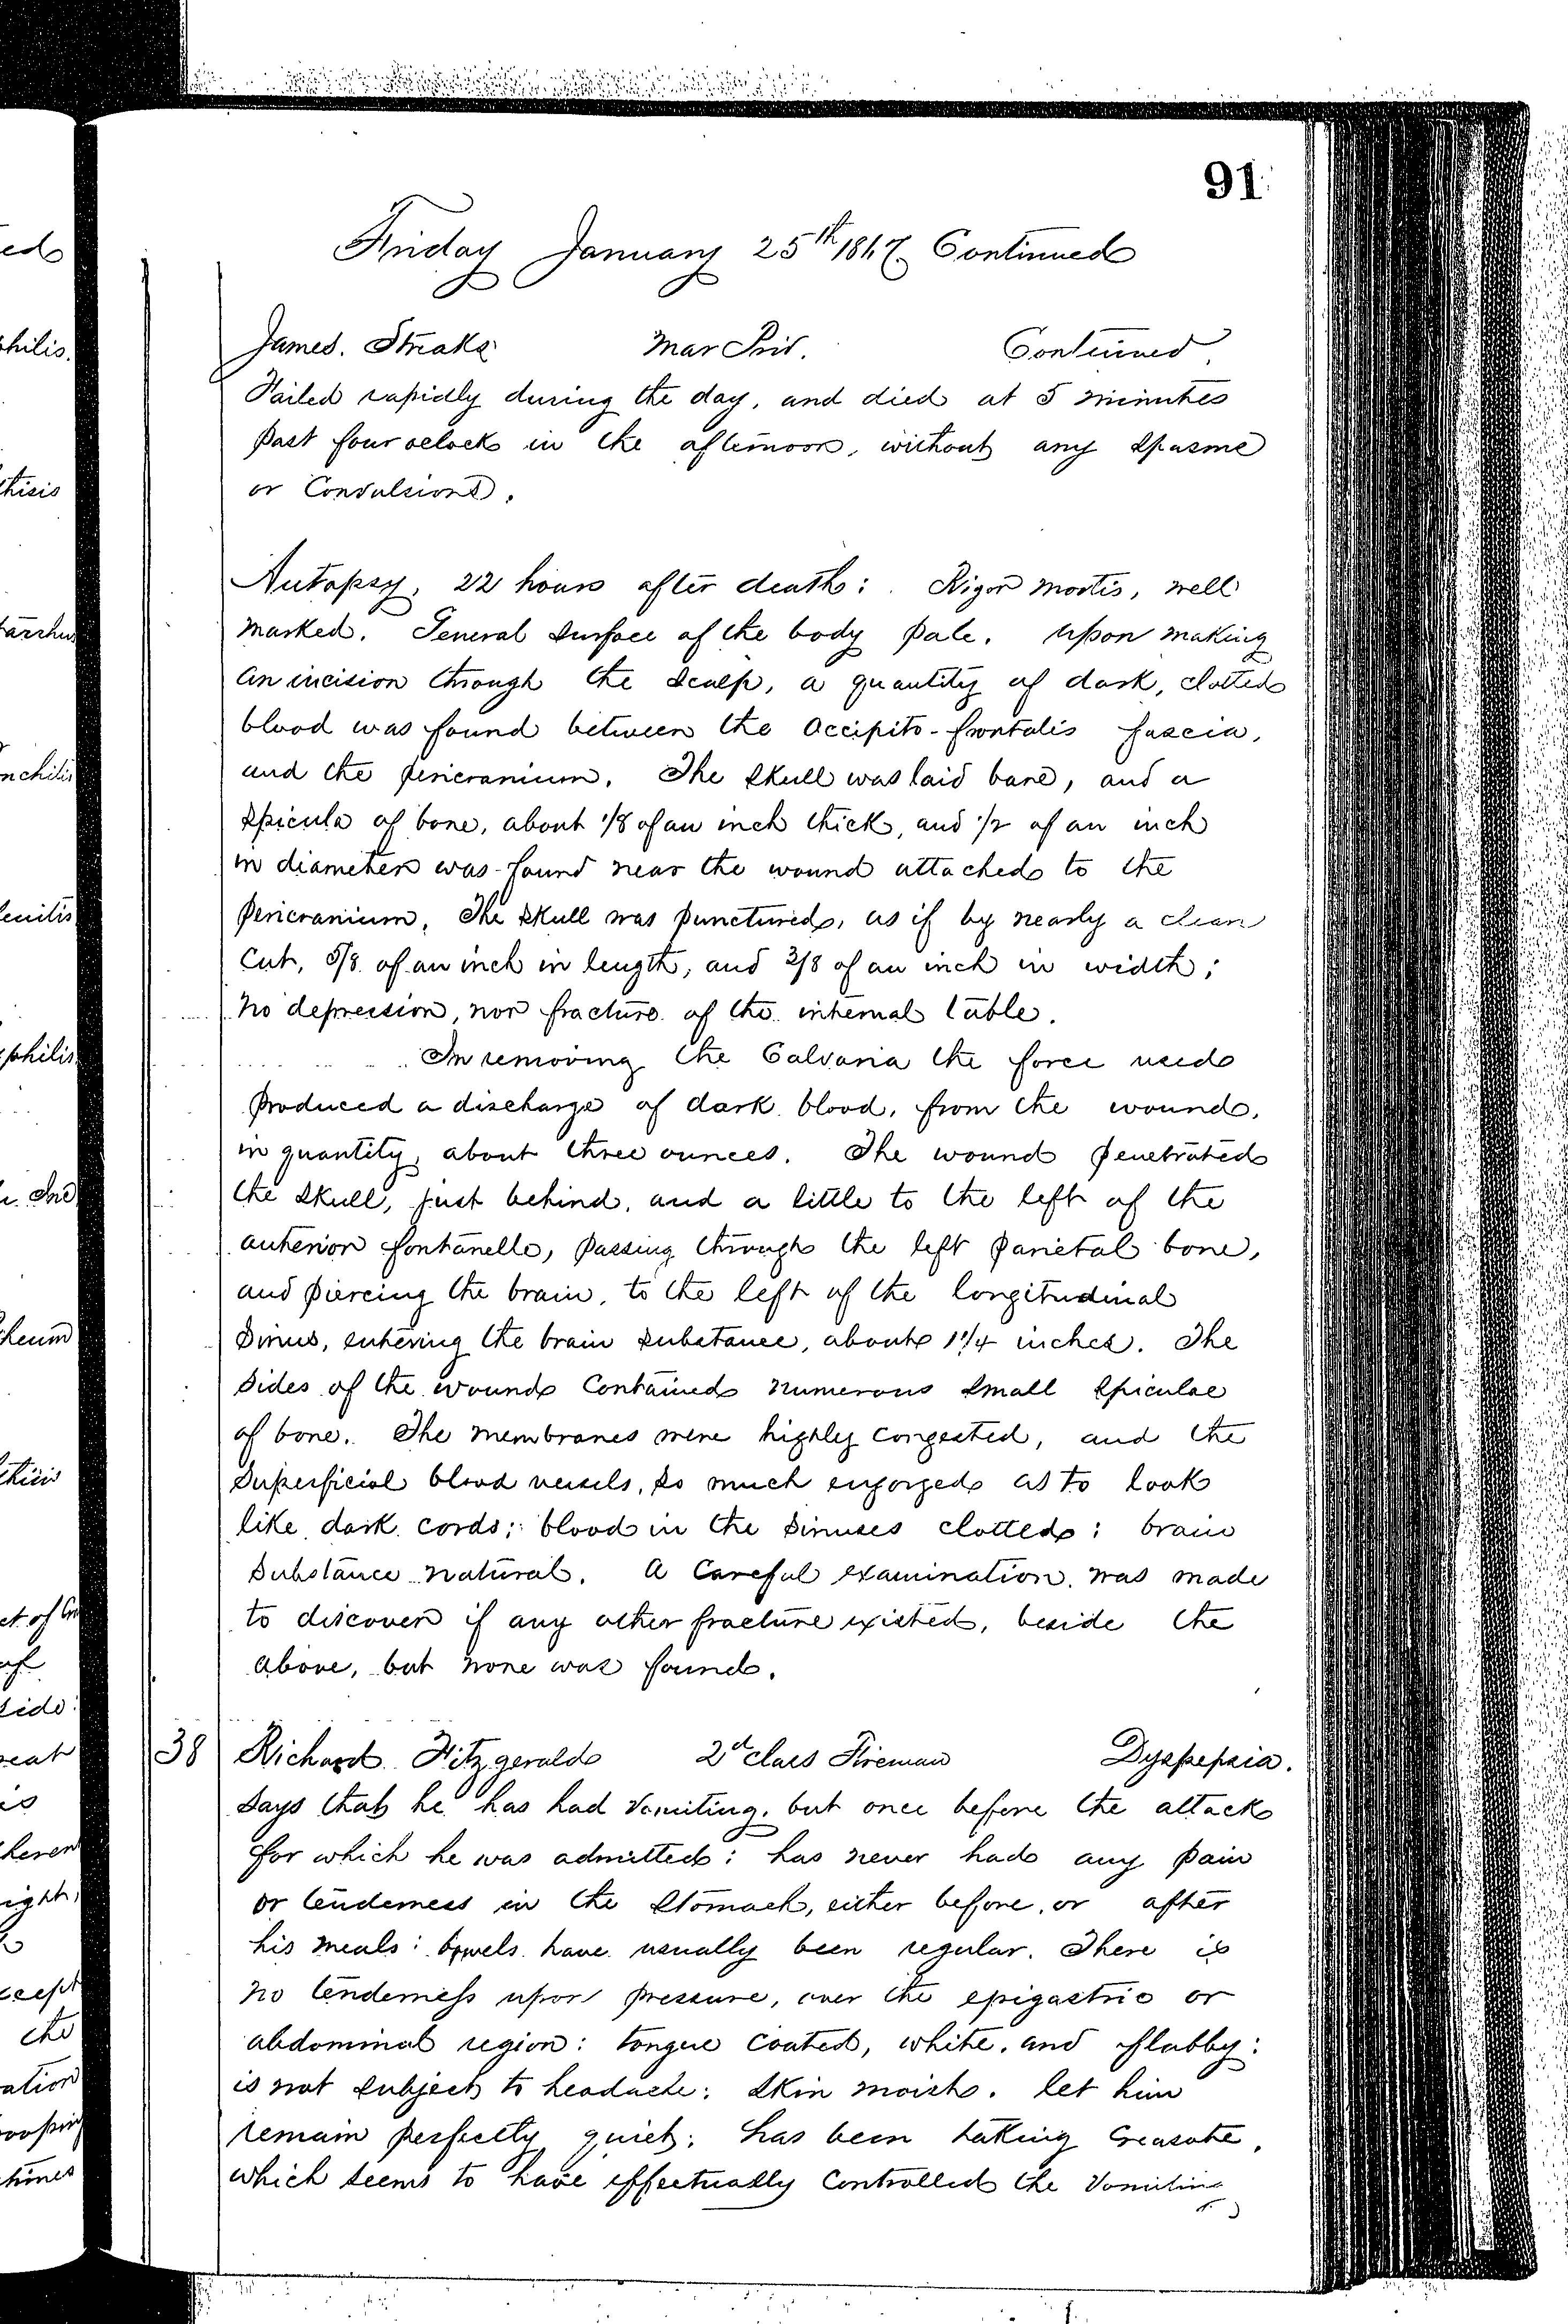 91
Friday January 25th 1867 Continued
James. Streaks Mar Priv. Continued
Failed rapidly during the day, and died at 5 minutes
past four oclock in the afternoon, without any spasms
or Convulsions.
Autopsy, 22 hours after death: Rigor mortis, well
marked. General surface of the body pale. Upon making
an incision through the scalp, a quantity of dark, clotted
blood was found between the occipito-frontalis fascia,
and the pericranium. The skull was laid bare, and a
spicula of bone, about 1/8 of an inch thick, and 1/2 of an inch
in diameter was found near the wound attached to the
pericranium. The skull was punctured, as if by nearly a clean
cut, 5/8 of an inch in length, and 3/8 of an inch in width;
no depression, nor fracture of the internal table.
In removing the Calvaria the force used
produced a discharge of dark blood, from the wound,
in quantity, about three ounces. The wound penetrated
the skull, just behind, and a little to the left of the
anterior fontanelle, passing through the left parietal bone,
and piercing the brain, to the left of the longitudinal
sinus, entering the brain substance, about 1 1/4 inches. The
sides of the wound contained numerous small spiculae
of bone. The membranes were highly congested, and the
superficial blood vessels, so much engorged as to look
like dark cords; blood in the sinuses clotted; brain
substance natural. A careful examination was made
to discover if any other fracture existed, beside the
above, but none was found.
38 Richard Fitzgerald 2d class Fireman Dyspepsia.
Says that he has had vomiting, but once before the attack
for which he was admitted: has never had any pain
or tenderness in the stomach, either before, or after
his meals: bowels have usually been regular. There is
no tenderness upon pressure, over the epigastric or
abdominal region: tongue coated, white, and flabby:
is not subject to headache: skin moist. let him
remain perfectly quiet: has been taking Creasote,
which seems to have effectually controlled the vomiting